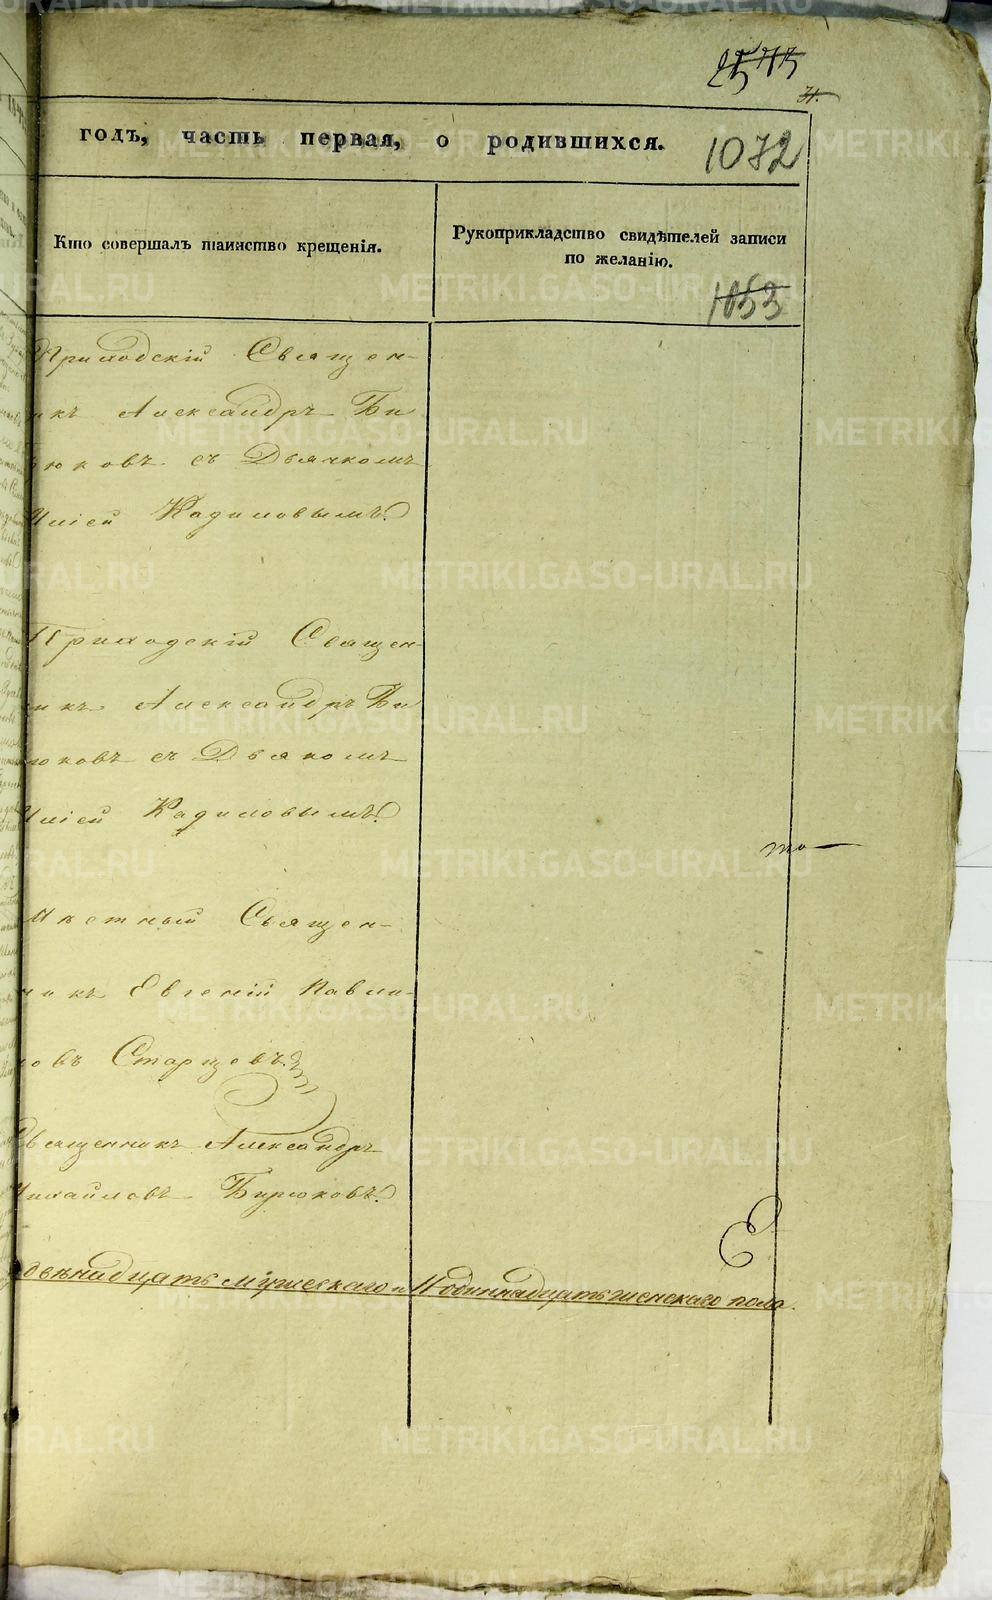 31.
годъ, часть первая, о родившихся.
1072
Кто совершалъ таинство крещенія.
Рукоприкладство свидѣтелей записи
по желанію.
1053
Приходскій Священ-
икъ Александръ Би
рюковъ съ Дьячкомъ
Иліей Кадиловымъ.
Приходскій Священ-
икъ Александръ Би
юковъ съ Дьякомъ
Иліей Кадиловымъ.
то
Священ-
никъ Евгеній Павли-
новъ Старцевъ
Священникъ Александръ
Михайловъ Бирюковъ.
двѣнадцать мужескаго и 11 одиннадцать женскаго пола.
METRIKI.GASO-URAL.RU